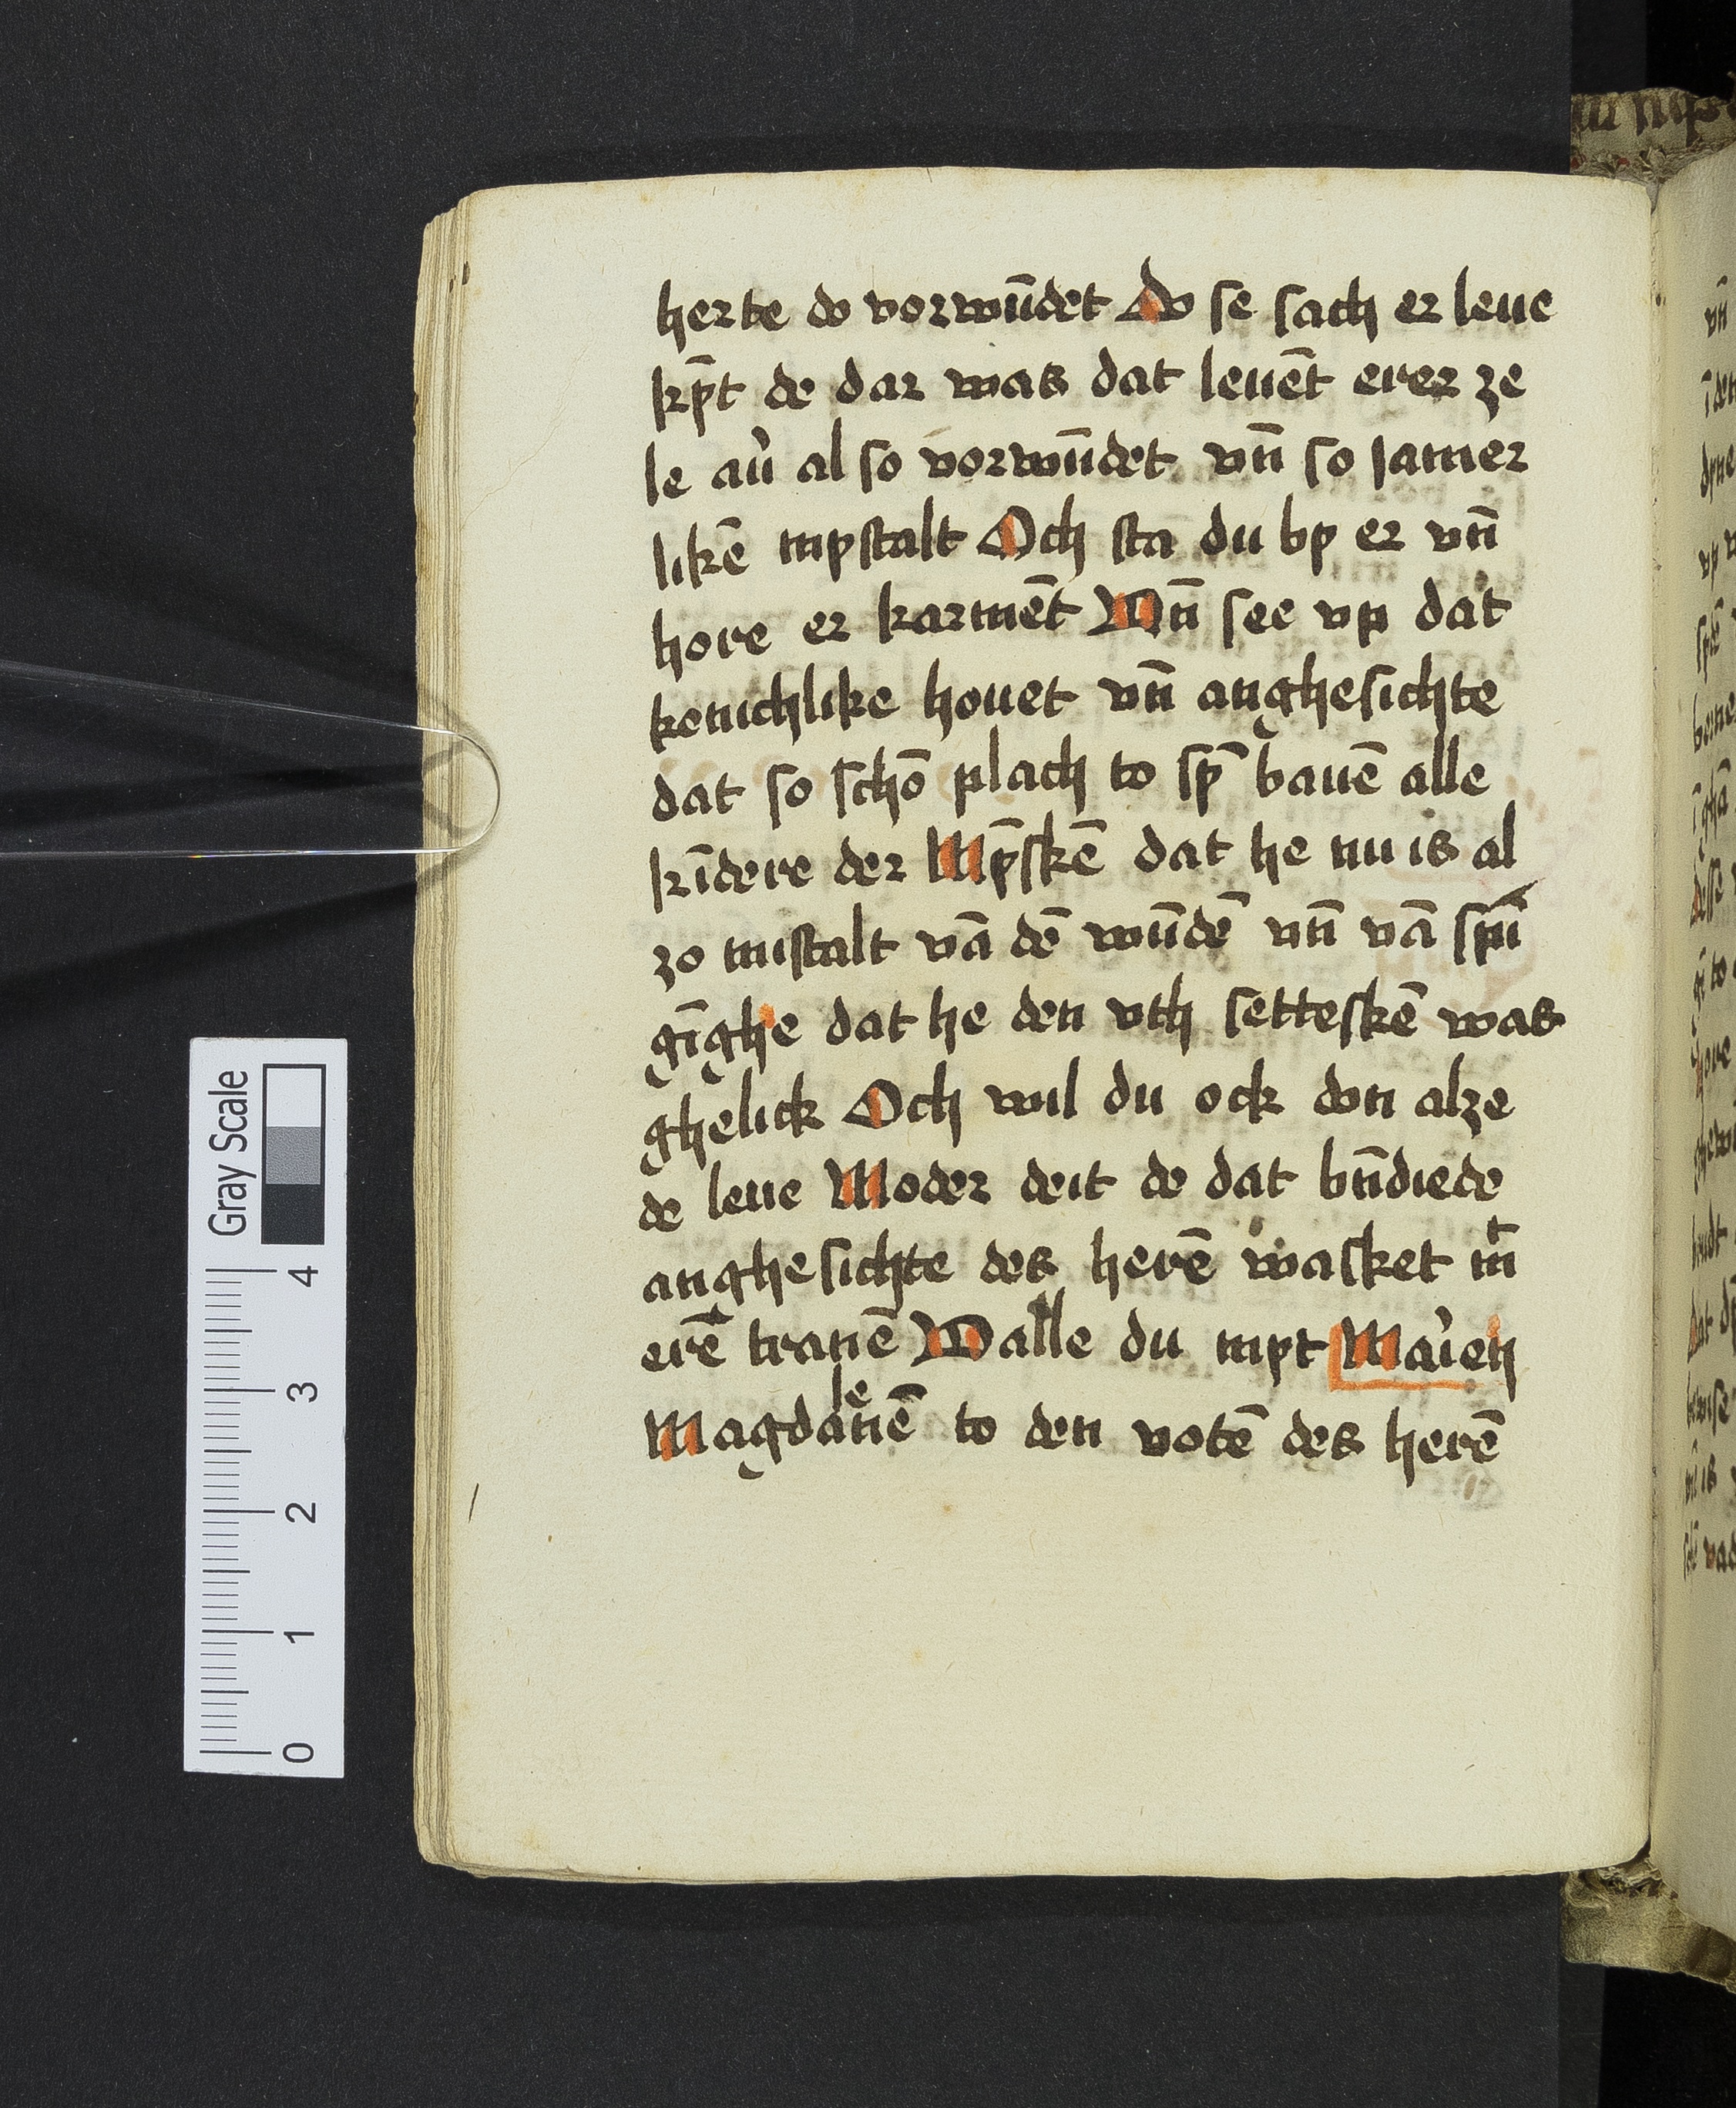 herte do vorwūdet Do se sach er leue
kȳt de dar was dat leuēt erer ze
le au̓ al so vorwūdet vn̄ so jamer
likē mystalt Och sta du by er vn̄
hore er karmēt Vn̄ see vp dat
konichlike houet vn̄ anghesichte
dat so schō plach to sȳ bauē alle
kīdere der Mȳskē dat he nu is al
zo mistalt vā dē wūdē vn̄ vā spīī
gīghe dat he den vth setteskē was
ghelick Och wil du ock don alze
de leue Moder deit de dat bn̄diede
anghesichte des herē wasket mͭ
erē tranē Valle du myt Ma͛ien
Magdalenē to den votē des herē
Gray Scale
4 3 2 1 0